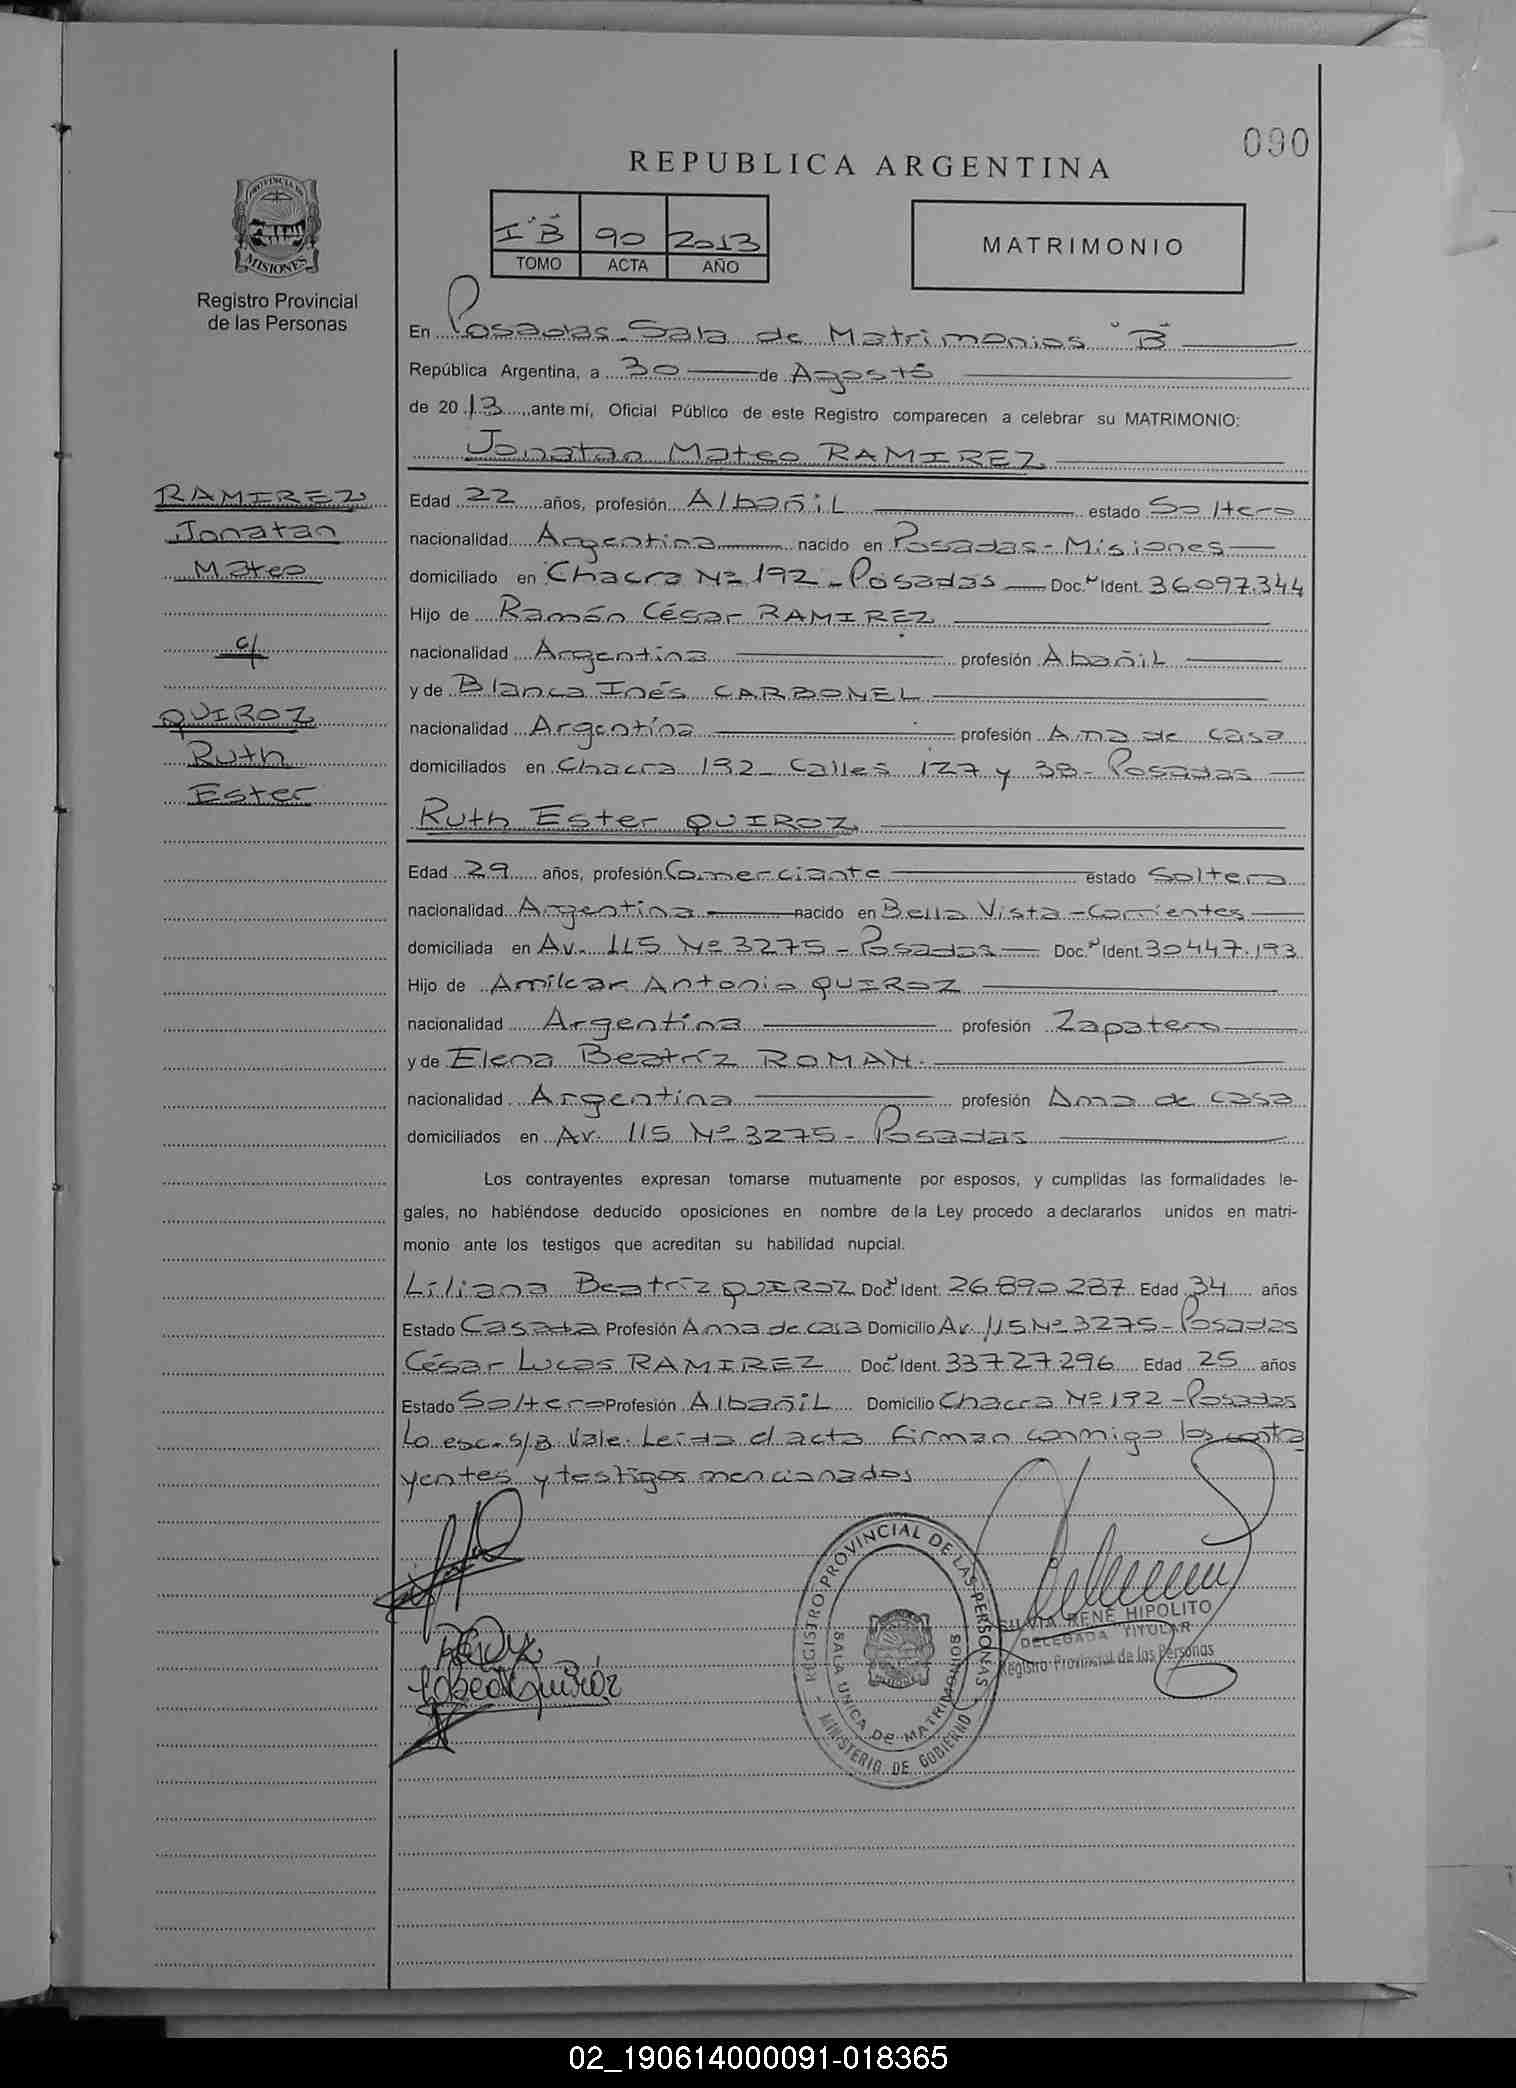 090
REPUBLICA ARGENTINA
PROVINCIA DE
MISIONES
Registro Provincial
de las Personas
I "B" 90 2013
TOMO ACTA AÑO
MATRIMONIO
En Posadas - Sala de Matrimonios "B"
República Argentina, a 30 de Agosto
de 2013, ante mí, Oficial Público de este Registro comparecen a celebrar su MATRIMONIO:
Jonatan Mateo RAMIREZ
RAMIREZ
Jonatan
Mateo
c/
QUIROZ
Ruth
Ester
Edad 22 años, profesión Albañil estado Soltero
nacionalidad Argentina nacido en Posadas - Misiones
domiciliado en Chacra Nº 192 - Posadas Doc. Ident. 36.097.344
Hijo de Ramón César RAMIREZ
nacionalidad Argentina profesión Abañil
y de Blanca Inés CARBONEL
nacionalidad Argentina profesión Ama de casa
domiciliados en Chacra 192 - Calles 127 y 38 - Posadas
Ruth Ester QUIROZ
Edad 29 años, profesión Comerciante estado Soltera
nacionalidad Argentina nacido en Bella Vista - Corrientes
domiciliada en Av. 115 Nº 3275 - Posadas Doc. Ident. 30.447.193
Hijo de Amílcar Antonio QUIROZ
nacionalidad Argentina profesión Zapatero
y de Elena Beatríz ROMAN.
nacionalidad Argentina profesión Ama de casa
domiciliados en Av. 115 Nº 3275 - Posadas
Los contrayentes expresan tomarse mutuamente por esposos, y cumplidas las formalidades le-
gales, no habiéndose deducido oposiciones en nombre de la Ley procedo a declararlos unidos en matri-
monio ante los testigos que acreditan su habilidad nupcial.
Liliana Beatríz QUIROZ Doc. Ident. 26.890.287 Edad 34 años
Estado Casada Profesión Ama de casa Domicilio Av. 115 Nº 3275 - Posadas
César Lucas RAMIREZ Doc. Ident. 33.727.296 Edad 25 años
Estado Soltero Profesión Albañil Domicilio Chacra Nº 192 - Posadas
Lo esc. s/ Vale. Leída el acta firman conmigo los contra
yentes y testigos mencionados
REGISTRO PROVINCIAL DE LAS PERSONAS
SALA UNICA DE MATRIMONIOS
MINISTERIO DE GOBIERNO
SILVIA RENÉ HIPOLITO
DELEGADA TITULAR
Registro Provincial de las Personas
02_190614000091-018365